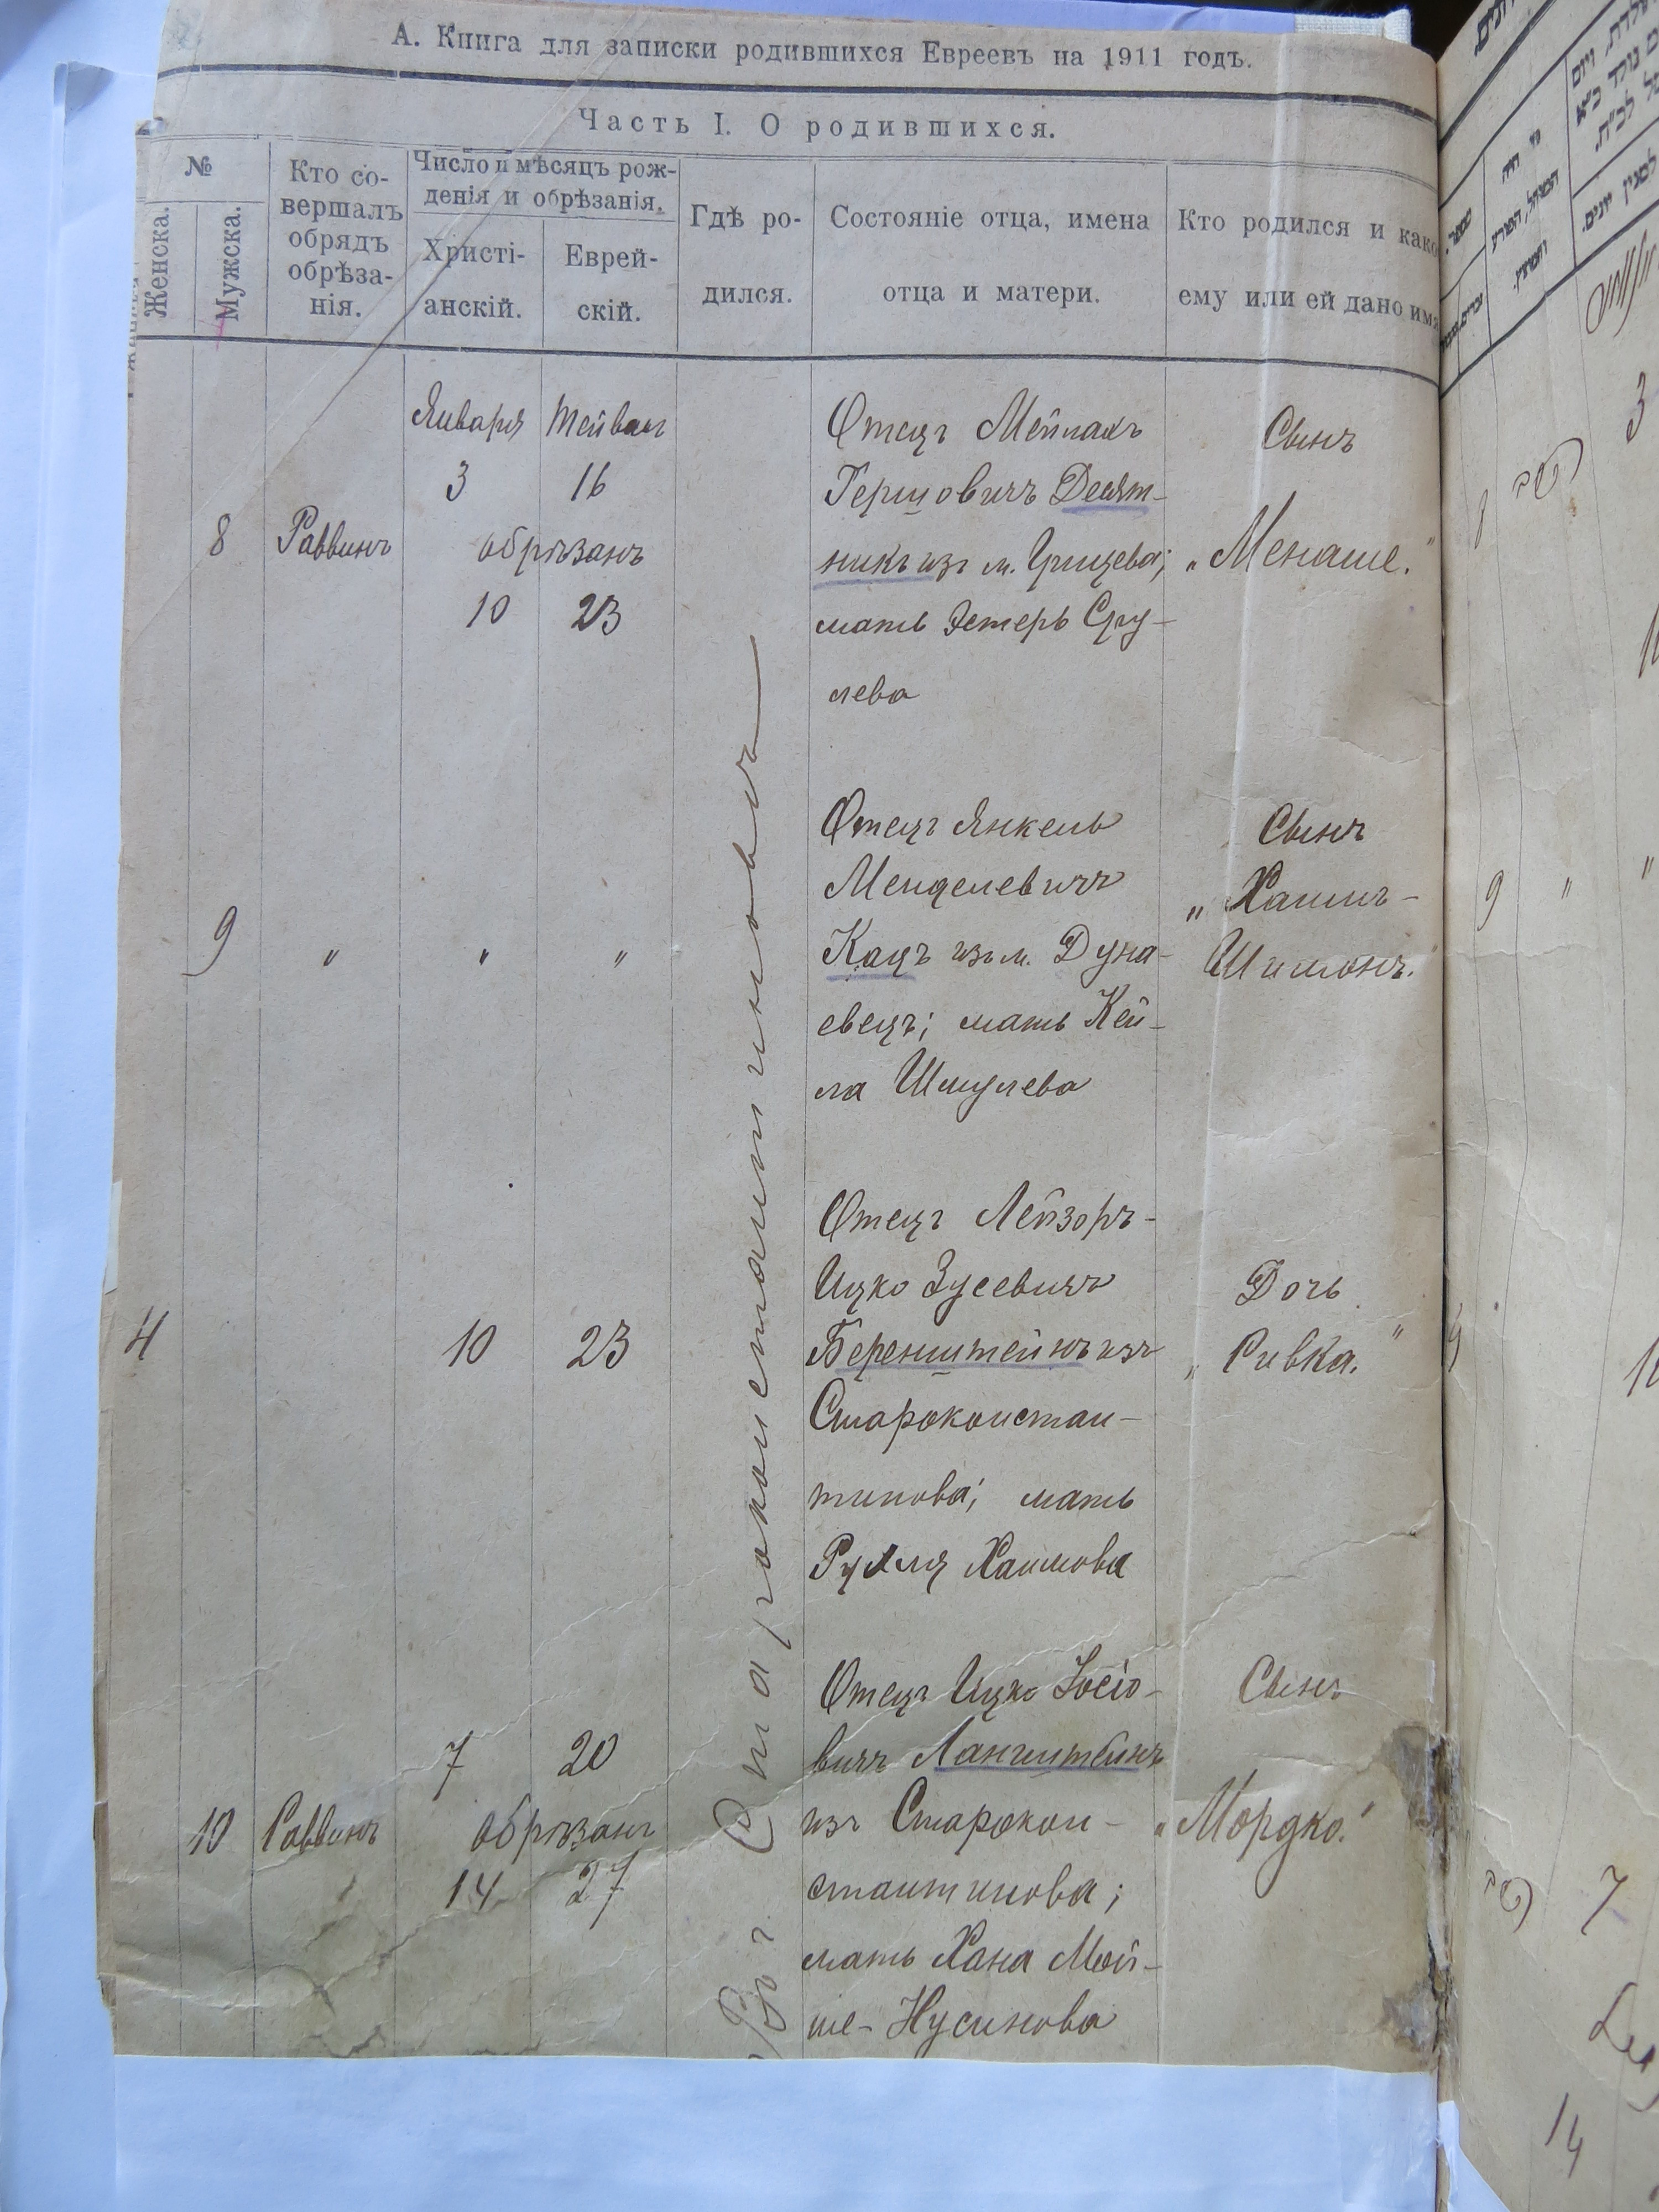 А. Книга для записки родившихся Евреевъ на 1911 годъ.
Часть I. О родившихся.
№
Женска.
Мужска.
Кто со-
вершалъ
обрядъ
обрѣза-
нія.
Число и мѣсяцъ рож-
денія и обрѣзанія.
Христі-
анскій.
Еврей-
скій.
Гдѣ ро-
дился.
Состояніе отца, имена
отца и матери.
Кто родился и како
ему или ей дано имя
Въ г. Староконстантиновѣ
8
Раввинъ
Января Тейвът
3 16
обрѣзанъ
10 23
Отецъ Мейлахъ
Гершовичъ Десят-
никъ изъ м. Грицева;
мать Эстеръ Сру-
лева
Сынъ
„Менаше."
9
"
" "
Отецъ Янкель
Менделевичъ
Кацъ изъ м. Дуна-
евецъ; мать Кей-
ла Шмулева
Сынъ
„Хаимъ-
Шимонъ."
4
10 23
Отецъ Лейзоръ-
Ицко Зусевичъ
Беренштейнъ изъ
Староконстан-
тинова; мать
Рухля Хаимова
Дочь
„Ривка."
10
Раввинъ
7 20
обрѣзанъ
14 27
Отецъ Ицко Іосіо-
вичъ Лангштейнъ
изъ Старокон-
стантинова;
мать Хана Мой-
ше-Нусинова
Сынъ
„Мордко."
3
9 " "
7
14